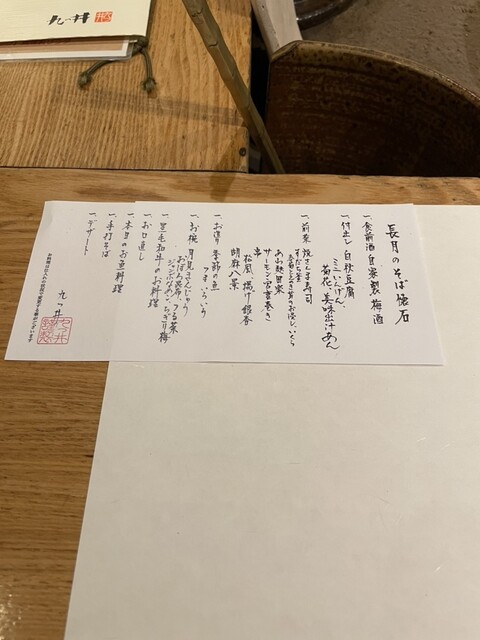 長月のそば懐石
一、食前酒 自家製梅酒
一、付出し 白秋豆腐
ミニいんげん
菊花、美味出汁あん
一、前菜 焼さんま寿司
すだち釜
あん肝田楽
サーモン
串
松風 揚げ銀杏
胡麻八景
一、お造り 季節の魚
つまいろいろ
一、お椀 月見さんじょう
おぼろ昆布、つる菜
ジャンボなめこ、ちぎり梅
一、黒毛和牛のお料理
一、お口直し
一、本日のお魚料理
一、手打そば
一、デザート
九つ井
九つ井